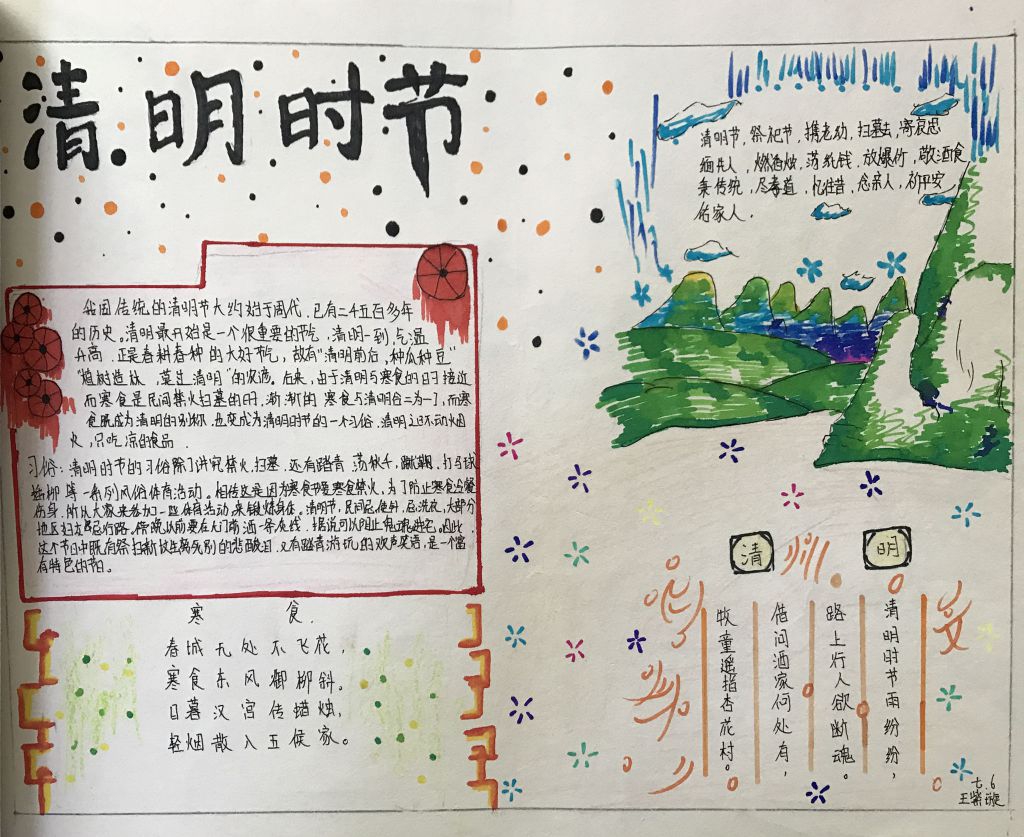 清明时节
我国传统的清明节大约始于周代，已有二千五百多年
的历史。清明最开始是一个很重要的节气，清明一到，气温
升高，正是春耕春种的大好节气，故有“清明前后，种瓜种豆”
“植树造林，莫过清明”的农谚。后来，由于清明与寒食的日子接近
而寒食是民间禁火扫墓的日，渐渐的寒食与清明合二为一了，而寒
食既成为清明的别称，也变成为清明时节的一个习俗，清明之日不动烟
火，只吃凉的食品
习俗：清明时节的习俗除了讲究禁火，扫墓，还有踏青 荡秋千，蹴鞠，打马球
插柳等一系列风俗体育活动。相传这是因为寒食节要寒食禁火，为了防止寒食冷餐
伤身，所以大家来参加一些体育活动，来锻炼身体。清明节，民间忌使针，忌洗衣，大部分
地区妇女忌行路。傍晚以前要在大门前洒一条灰线，据说可以阻止鬼魂进宅。因此，
这个节日中既有祭扫新坟生离死别的悲酸泪，又有踏青游玩的欢声笑语，是一个富
有特色的节日。
寒 食
春城无处不飞花，
寒食东风御柳斜。
日暮汉宫传蜡烛，
轻烟散入五侯家。
清明节，祭祀节，携老幼，扫墓去，寄哀思
缅先人，燃香烛，荡纸钱，放爆竹，敬酒食
秉传统，尽孝道，忆往昔，念亲人，祈平安
佑家人.
清 明
清明时节雨纷纷，
路上行人欲断魂。
借问酒家何处有，
牧童遥指杏花村。
七.6
王紫璇